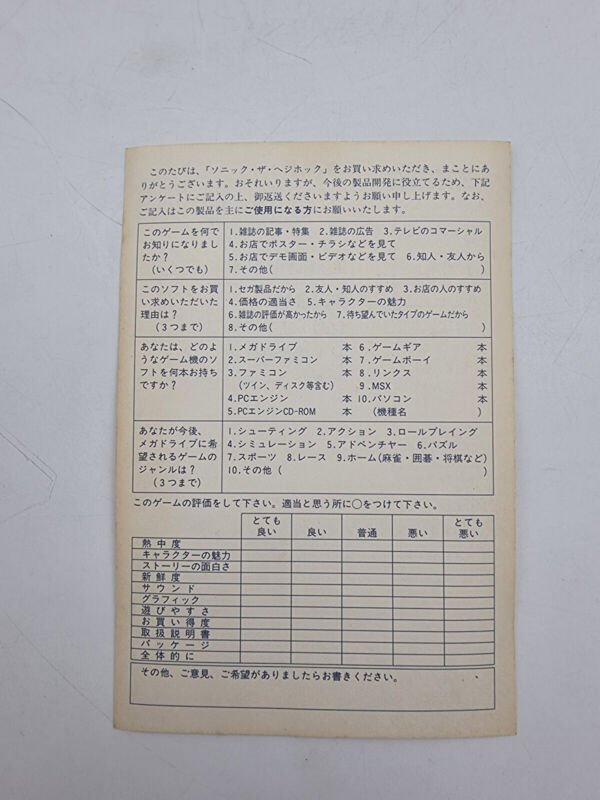 このたびは、「ソニック・ザ・ヘジホック」をお買い求めいただき、まことにあ
りがとうございます。おそれいりますが、今後の製品開発に役立てるため、下記
アンケートにご記入の上、御返送くださいますようお願い申し上げます。なお、
ご記入はこの製品を主にご使用になる方にお願いいたします。
このゲームを何で
お知りになりまし
たか?
(いくつでも)
1.雑誌の記事・特集 2.雑誌の広告 3.テレビのコマーシャル
4.お店でポスター・チラシなどを見て
5.お店でデモ画面・ビデオなどを見て 6.知人・友人から
7.その他( )
このソフトをお買
い求めいただいた
理由は?
(3つまで)
1.セガ製品だから 2.友人・知人のすすめ 3.お店の人のすすめ
4.価格の適当さ 5.キャラクターの魅力
6.雑誌の評価が高かったから 7.待ち望んでいたタイプのゲームだから
8.その他( )
あなたは、どのよ
うなゲーム機のソ
フトを何本お持ち
ですか?
1.メガドライブ 本 6.ゲームギア 本
2.スーパーファミコン 本 7.ゲームボーイ 本
3.ファミコン 本 8.リンクス 本
(ツイン、ディスク等含む) 9.MSX 本
4.PCエンジン 本 10.パソコン 本
5.PCエンジンCD-ROM 本 (機種名 )
あなたが今後、
メガドライブに希
望されるゲームの
ジャンルは?
(3つまで)
1.シューティング 2.アクション 3.ロールプレイング
4.シミュレーション 5.アドベンチャー 6.パズル
7.スポーツ 8.レース 9.ホーム(麻雀・囲碁・将棋など)
10.その他( )
このゲームの評価をして下さい。適当と思う所に○をつけて下さい。
とても
良い
良い
普通
悪い
とても
悪い
熱中度
キャラクターの魅力
ストーリーの面白さ
新鮮度
サウンド
グラフィック
遊びやすさ
お買い得度
取扱説明書
パッケージ
全体的に
その他、ご意見、ご希望がありましたらお書きください。